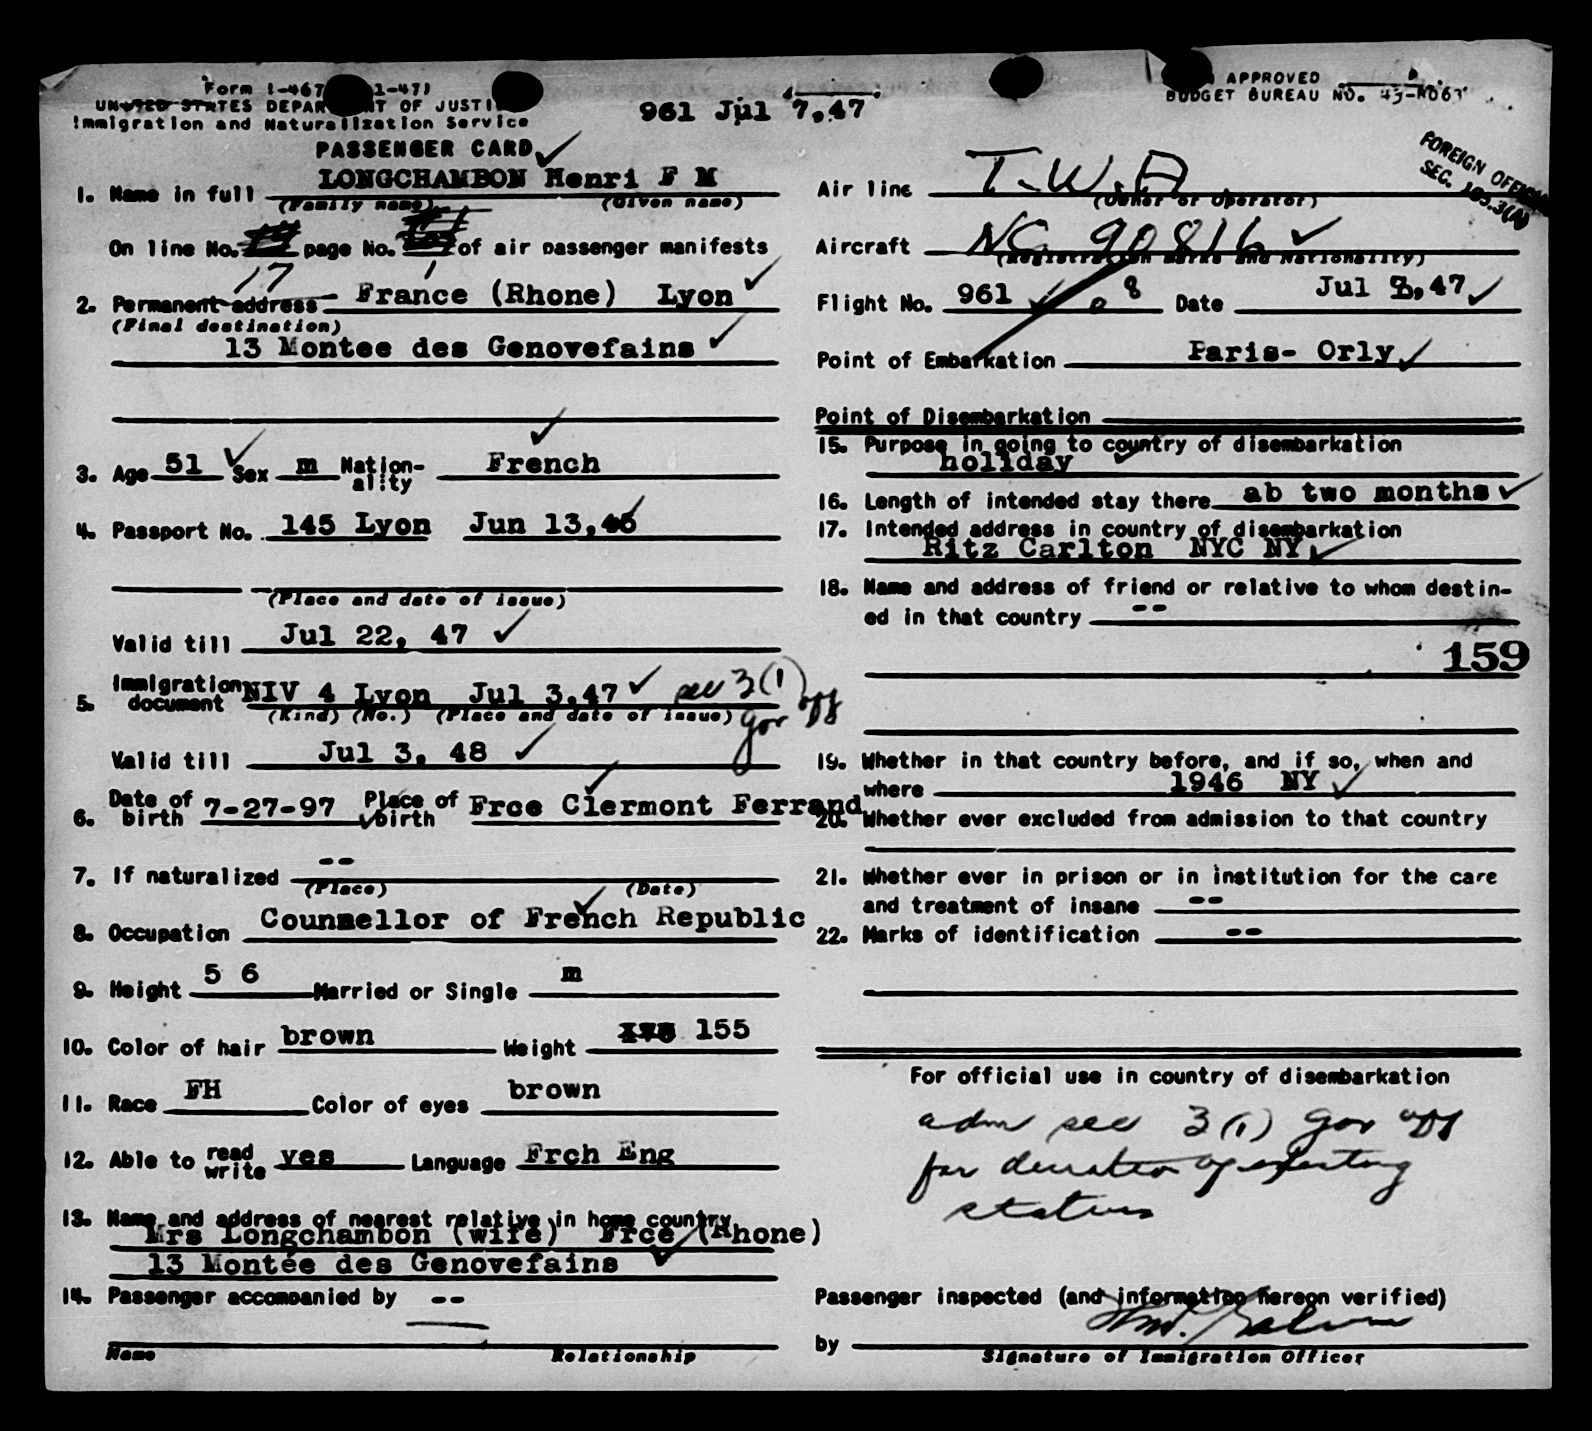 Form I-467 1-47)
UNITED STATES DEPARTMENT OF JUSTICE
Immigration and Naturalization Service
961 Jul 7,47
APPROVED
BUDGET BUREAU NO. 43-R063
PASSENGER CARD
FOREIGN OFFICIAL
SEC.
1. Name in full LONGCHAMBON Henri F M
(Family name) (Given name)
On line No. 17 page No. 1 of air passenger manifests
2. Permanent address France (Rhone) Lyon
(Final destination)
13 Montee des Genovefains
3. Age 51 Sex m Nation-ality French
4. Passport No. 145 Lyon Jun 13,46
(Place and date of issue)
Valid till Jul 22, 47
5. Immigration document NIV 4 Lyon Jul 3,47 sec 3(1) gov off
(Kind) (No.) (Place and date of issue)
Valid till Jul 3, 48
6. Date of birth 7-27-97 Place of birth Frce Clermont Ferrand
7. If naturalized --
(Place) (Date)
8. Occupation Counsellor of French Republic
9. Height 5 6 Married or Single m
10. Color of hair brown Weight 155
11. Race FH Color of eyes brown
12. Able to read write yes Language Frch Eng
13. Name and address of nearest relative in home country
Mrs Longchambon (wife) Frce (Rhone)
13 Montée des Genovefains
14. Passenger accompanied by --
Name Relationship
Air line T.W.A.
(Owner or Operator)
Aircraft NC 90816
(Registration marks and Nationality)
Flight No. 961 8 Date Jul 8,47
Point of Embarkation Paris- Orly
Point of Disembarkation
15. Purpose in going to country of disembarkation
holiday
16. Length of intended stay there ab two months
17. Intended address in country of disembarkation
Ritz Carlton NYC NY
18. Name and address of friend or relative to whom destin-
ed in that country --
159
19. Whether in that country before, and if so, when and
where 1946 NY
20. Whether ever excluded from admission to that country
21. Whether ever in prison or in institution for the care
and treatment of insane --
22. Marks of identification --
For official use in country of disembarkation
adm sec 3(1) gov off
for duration of existing
status
Passenger inspected (and information hereon verified)
by
Signature of Immigration Officer